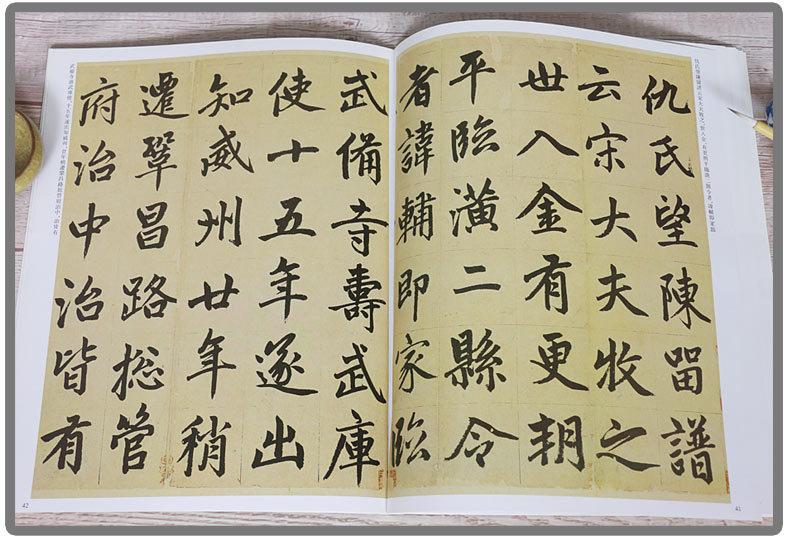 仇氏望陳留譜
云宋大夫牧之
世入金有更朝
平臨潢二縣令
者諱輔即家臨
41
武備寺壽武庫
使十五年遂出
知威州廿年稍
遷鞏昌路総管
府治中治皆有
42